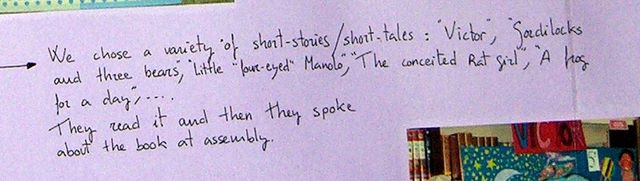 We chose a variety of short-stories/short-tales: "Victor", "Goldilocks
and three bears", "Little "four-eyed" Manolo", "The conceited Rat girl", "A frog
for a day", ....
They read it and then they spoke
about the book at assembly.
VICTO